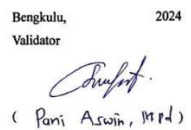 Bengkulu, 2024
Validator
( Pani Aswin, M.Pd )